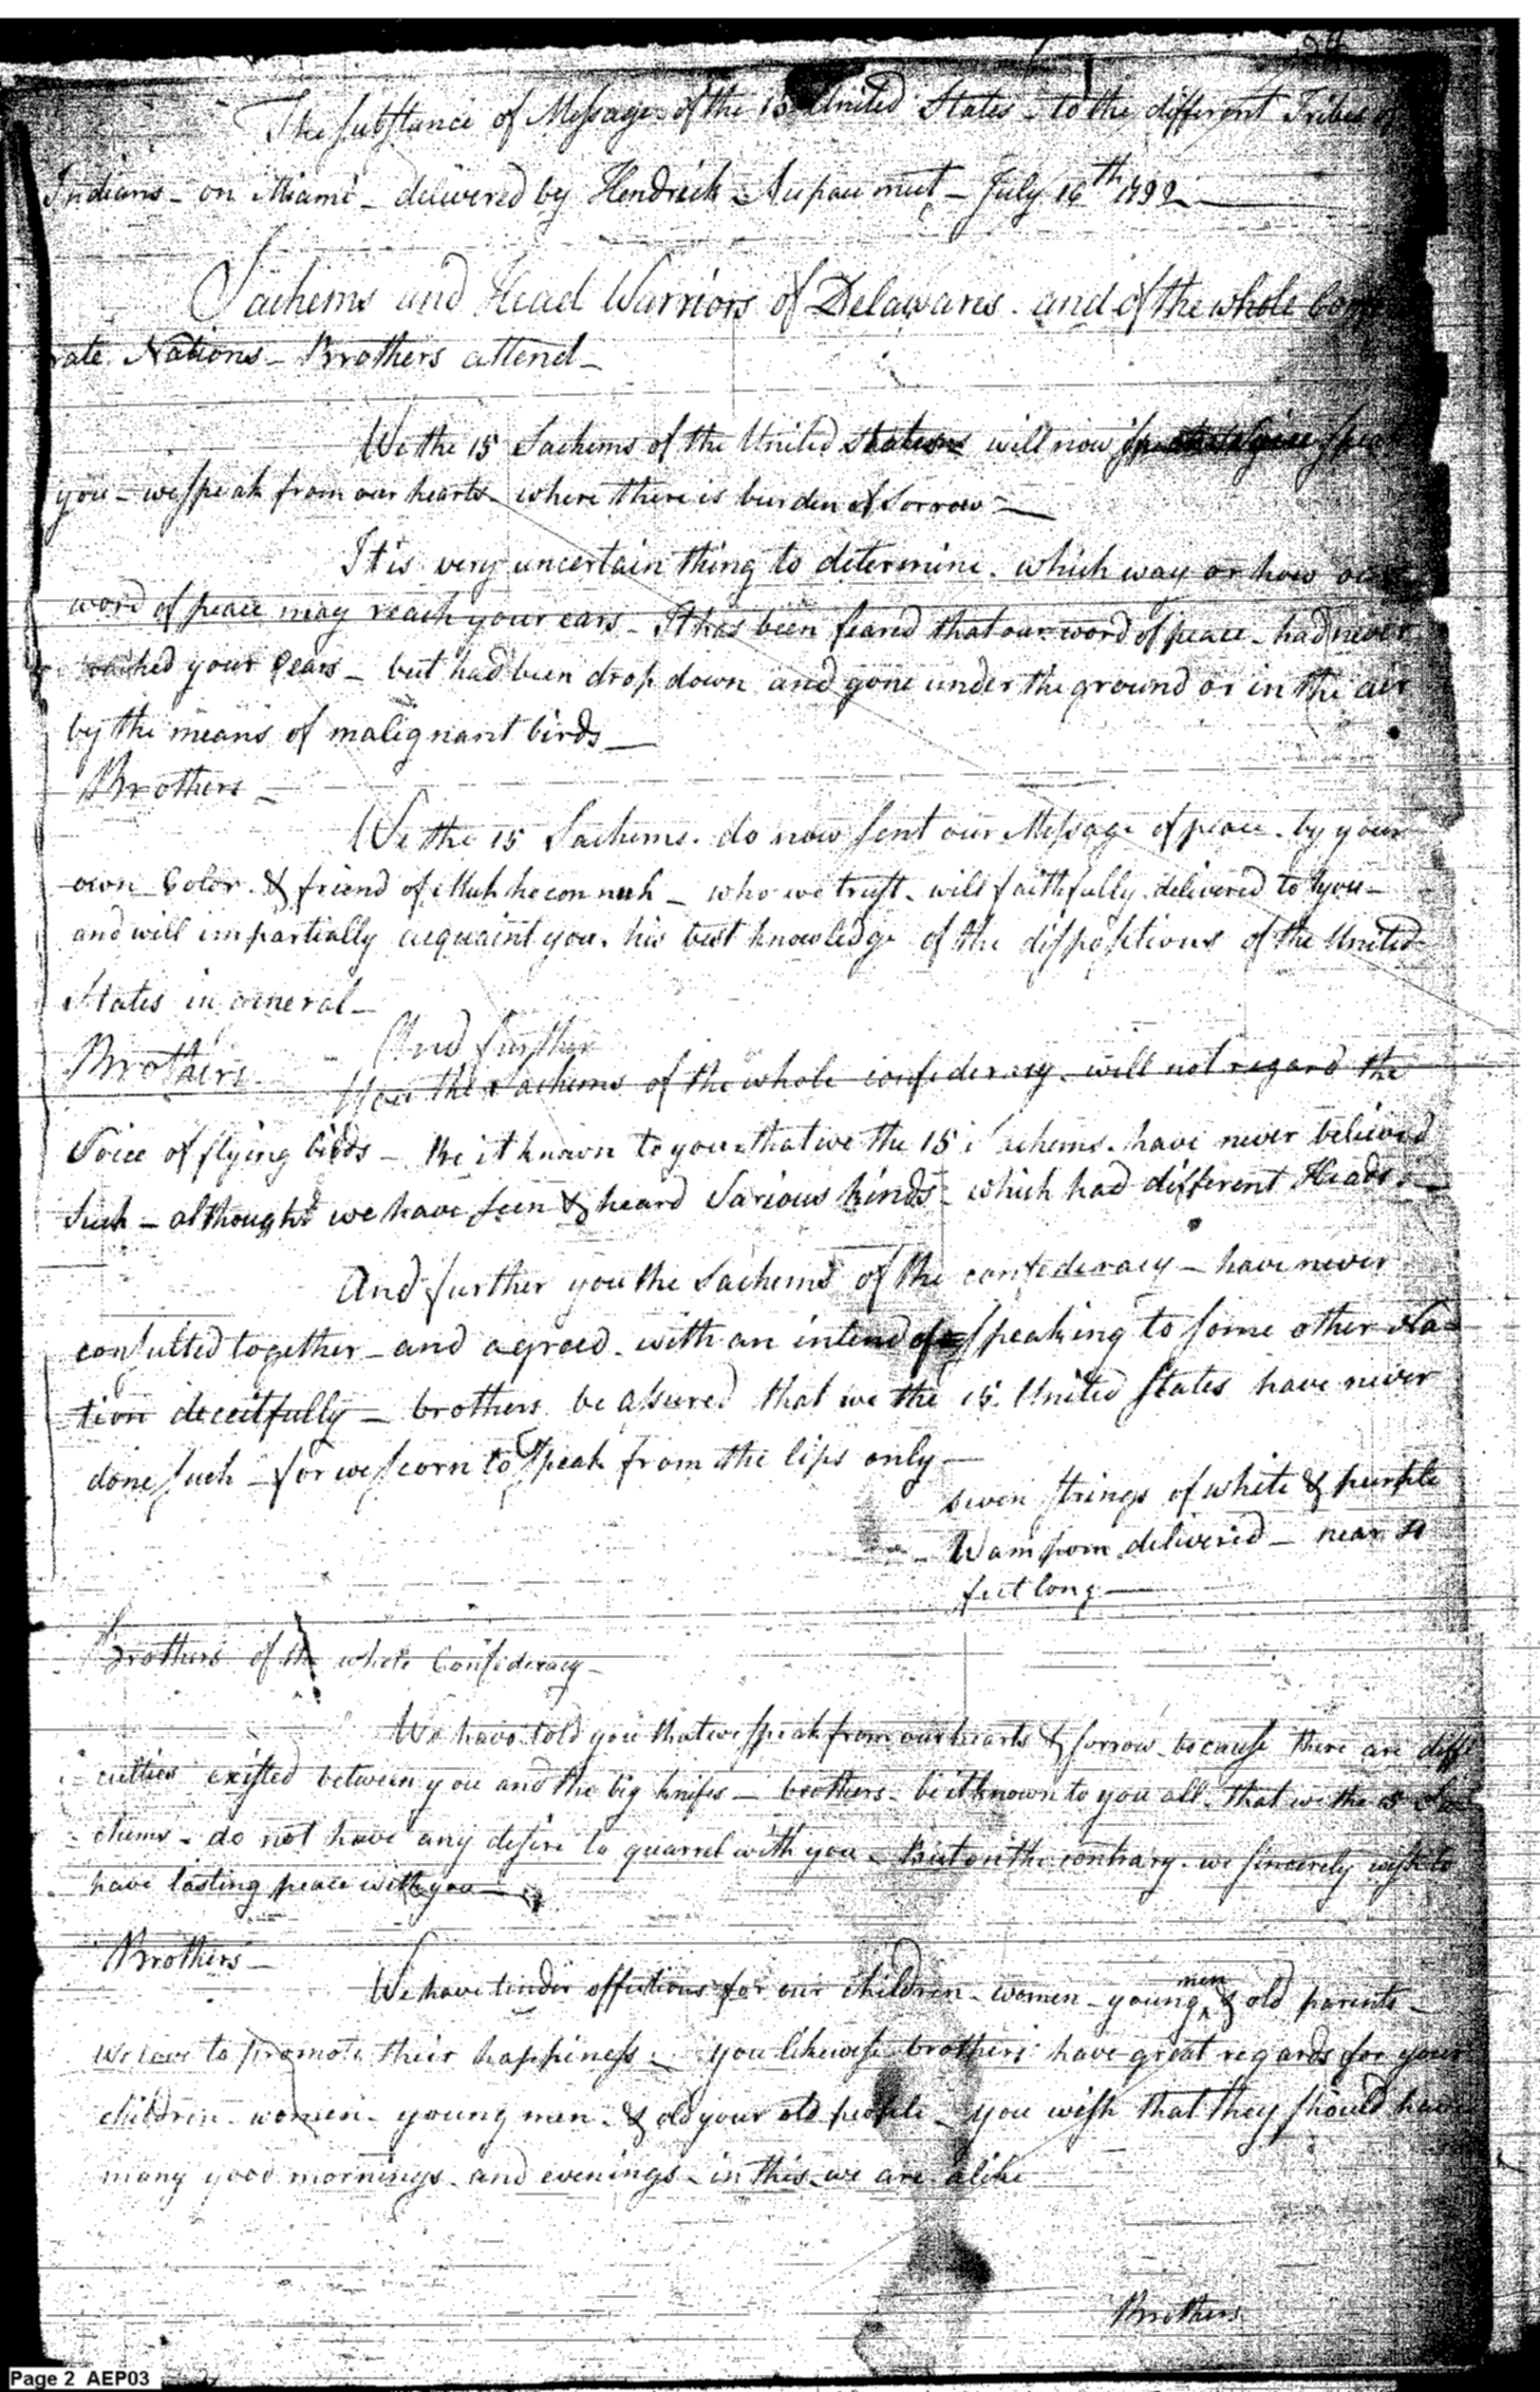 The substance of Message of the 15 United States - to the different Tribes of
Indians - on Miami - delivered by Hendrick Aupaumut - July 16th 1792
Sachems and Head Warriors of Delawares - and of the whole
rate Nations - Brothers attend -
We the 15 Sachems of the United States will now
you - we speak from our hearts - where there is burden of sorrow -
It is very uncertain thing to determine - which way or how our
word of peace may reach your ears - It has been feared that our word of peace - had never
reached your ears - but had been drop down and gone under the ground or in the air
by the means of malignant birds -
Brothers -
We the 15 Sachems - do now sent our Message of peace - by your
own Color - & friend of Muh he con nuh - who we trust - will faithfully delivered to you -
and will impartially acquaint you, his best knowledge of the dispositions of the United
States in general -
And further
Brothers - You the Sachems of the whole confederacy - will not regard the
Voice of flying birds - Be it known to you that we the 15 Sachems - have never believed
Such - althought we have seen & heard Various kinds - which had different Heads -
And further you the Sachems of the confederacy - have never
consulted together - and agreed - with an intend of speaking to some other Na-
tion deceitfully - brothers be assured that we the 15 United States have never
done such - for we scorn to Speak from the lips only -
Seven strings of white & purple
Wampom delivered - near
feet long -
Brothers of the whole Confederacy -
We have told you that we speak from our hearts & sorrow - because there are diffi
culties existed between you and the big knifes - brothers - be it known to you all - that we the 15 Sa
chems - do not have any desire to quarrel with you - But on the contrary - we sincerely wish to
have lasting peace with you -
Brothers -
We have tender affections for our children - women - young men & old parents -
We love to promote their happiness - you likewise brothers have great regards for your
children - women - young men - & old your old people - you wish that they should have
many good mornings and evenings - in this we are alike
Brothers
Page 2 AEP03